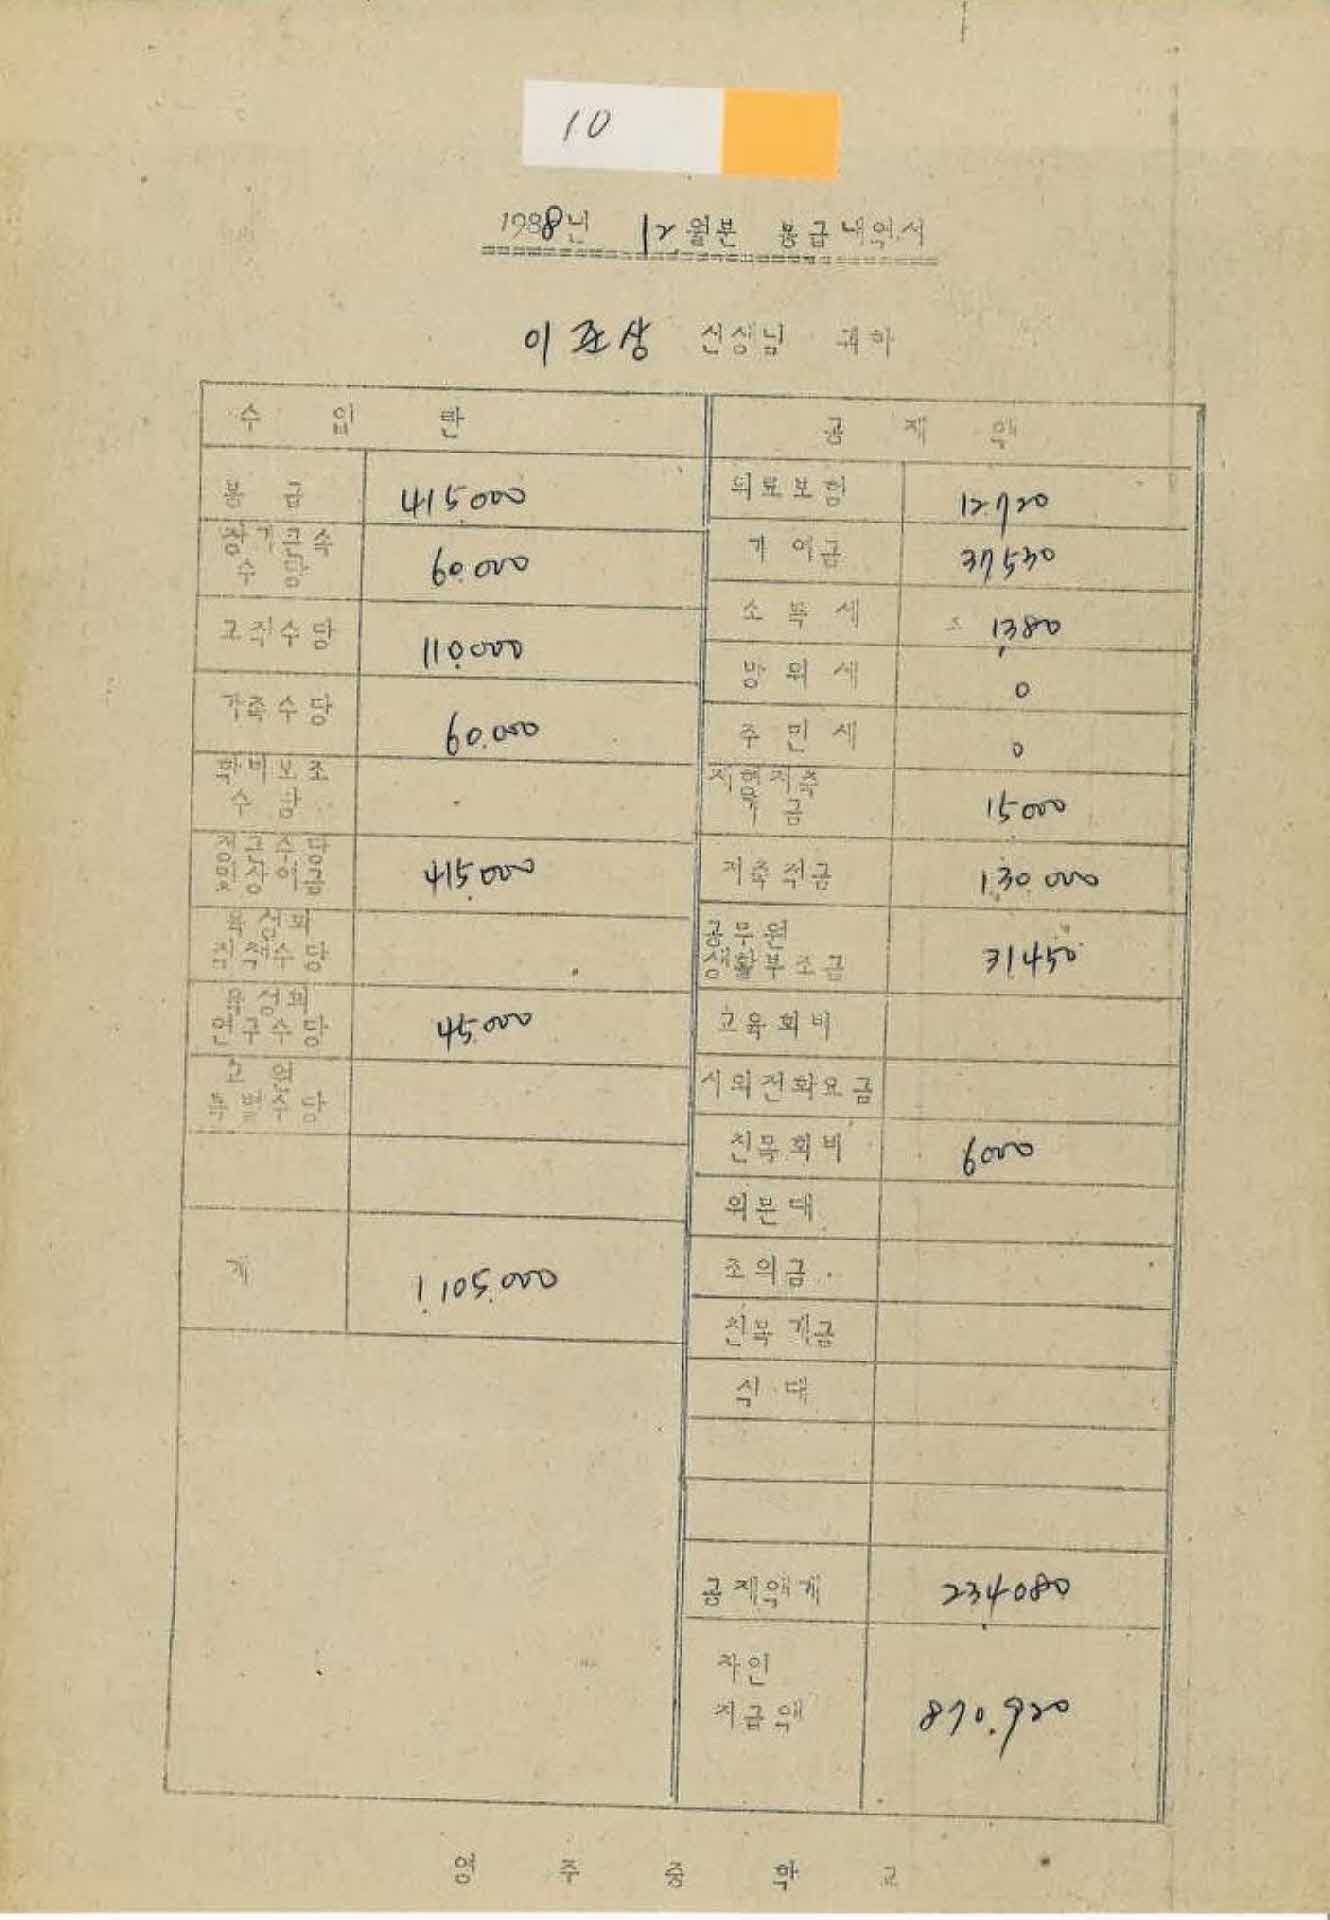 10
1988년 12월분 봉급내역서
이조상 선생님 귀하
수 입 란
봉 급 415.000
장기근속 수 당 60.000
교직수당 110.000
가족수당 60.000
학비보조 수 당
정근수당 및상여금 415.000
육성회 직책수당
육성회 연구수당 45.000
교 원 특별수당
계 1.105.000
공 제 액
의료보험 12.720
기 여 금 37530
소 득 세 1,380
방 위 세 0
주 민 세 0
금 15000
저축적금 130.000
공무원 생활부조금 31450
교육회비
시외전화요금
친목회비 6000
위문대
조의금
친목기금
식 대
공제액계 234.080
차인 지급액 870.920
영 주 중 학 교